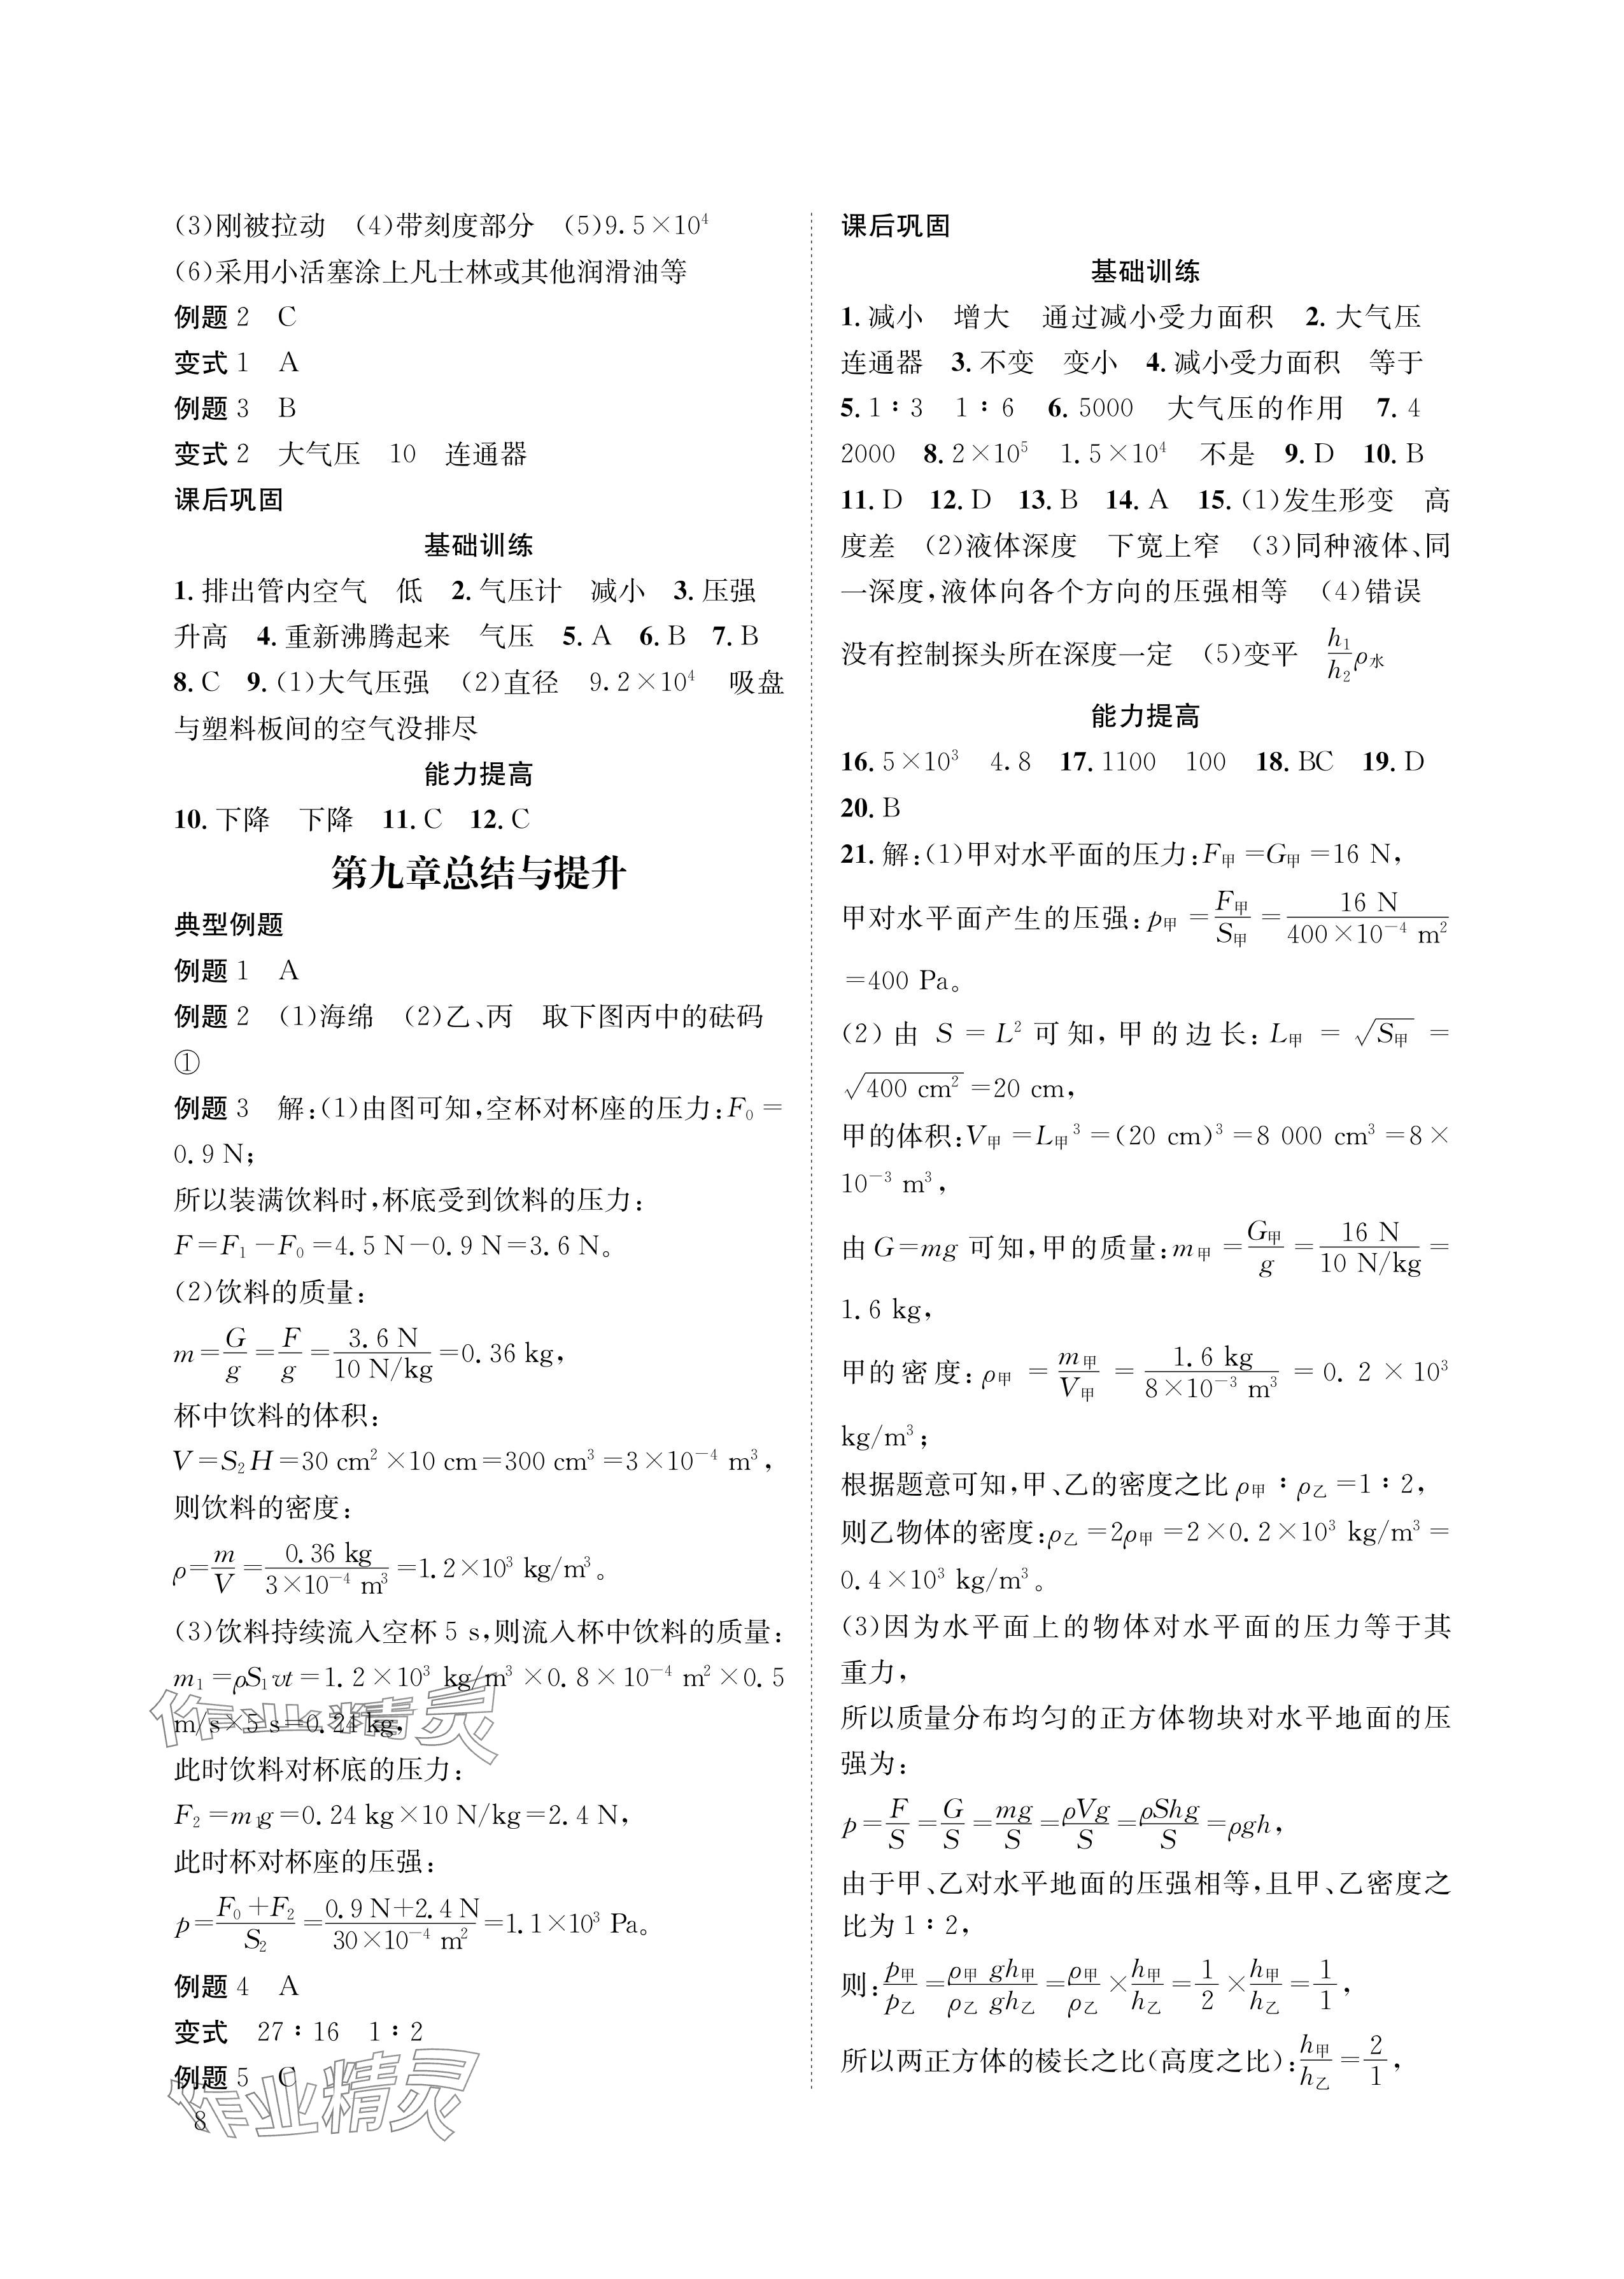 (3)刚被拉动　(4)带刻度部分　(5)9.5×10⁴
(6)采用小活塞涂上凡士林或其他润滑油等
例题2　C
变式1　A
例题3　B
变式2　大气压　10　连通器
课后巩固
基础训练
1.排出管内空气　低　2.气压计　减小　3.压强
升高　4.重新沸腾起来　气压　5.A　6.B　7.B
8.C　9.(1)大气压强　(2)直径　9.2×10⁴　吸盘
与塑料板间的空气没排尽
能力提高
10.下降　下降　11.C　12.C
第九章总结与提升
典型例题
例题1　A
例题2　(1)海绵　(2)乙、丙　取下图丙中的砝码
①
例题3　解:(1)由图可知,空杯对杯座的压力:F₀=
0.9 N;
所以装满饮料时,杯底受到饮料的压力:
F=F₁−F₀=4.5 N−0.9 N=3.6 N。
(2)饮料的质量:
m=G/g=F/g=3.6 N/10 N/kg=0.36 kg,
杯中饮料的体积:
V=S₂H=30 cm²×10 cm=300 cm³=3×10⁻⁴ m³,
则饮料的密度:
ρ=m/V=0.36 kg/3×10⁻⁴ m³=1.2×10³ kg/m³。
(3)饮料持续流入空杯5 s,则流入杯中饮料的质量:
m₁=ρS₁vt=1.2×10³ kg/m³×0.8×10⁻⁴ m²×0.5
m/s×5 s=0.24 kg,
此时饮料对杯底的压力:
F₂=m₁g=0.24 kg×10 N/kg=2.4 N,
此时杯对杯座的压强:
p=F₀+F₂/S₂=0.9 N+2.4 N/30×10⁻⁴ m²=1.1×10³ Pa。
例题4　A
变式　27∶16　1∶2
例题5　C
8
作业精灵
作业精灵
课后巩固
基础训练
1.减小　增大　通过减小受力面积　2.大气压
连通器　3.不变　变小　4.减小受力面积　等于
5.1∶3　1∶6　6.5000　大气压的作用　7.4
2000　8.2×10⁵　1.5×10⁴　不是　9.D　10.B
11.D　12.D　13.B　14.A　15.(1)发生形变　高
度差　(2)液体深度　下宽上窄　(3)同种液体、同
一深度,液体向各个方向的压强相等　(4)错误
没有控制探头所在深度一定　(5)变平　h₁/h₂ρ水
能力提高
16.5×10³　4.8　17.1100　100　18.BC　19.D
20.B
21.解:(1)甲对水平面的压力:F甲=G甲=16 N,
甲对水平面产生的压强:p甲=F甲/S甲=16 N/400×10⁻⁴ m²
=400 Pa。
(2)由 S=L²可知,甲的边长:L甲=√S甲=
√400 cm²=20 cm,
甲的体积:V甲=L甲³=(20 cm)³=8 000 cm³=8×
10⁻³ m³,
由G=mg可知,甲的质量:m甲=G甲/g=16 N/10 N/kg=
1.6 kg,
甲的密度:ρ甲=m甲/V甲=1.6 kg/8×10⁻³ m³=0.2×10³
kg/m³;
根据题意可知,甲、乙的密度之比ρ甲∶ρ乙=1∶2,
则乙物体的密度:ρ乙=2ρ甲=2×0.2×10³ kg/m³=
0.4×10³ kg/m³。
(3)因为水平面上的物体对水平面的压力等于其
重力,
所以质量分布均匀的正方体物块对水平地面的压
强为:
p=F/S=G/S=mg/S=ρVg/S=ρShg/S=ρgh,
由于甲、乙对水平地面的压强相等,且甲、乙密度之
比为1∶2,
则:p甲/p乙=ρ甲gh甲/ρ乙gh乙=ρ甲/ρ乙×h甲/h乙=1/2×h甲/h乙=1/1,
所以两正方体的棱长之比(高度之比):h甲/h乙=2/1,